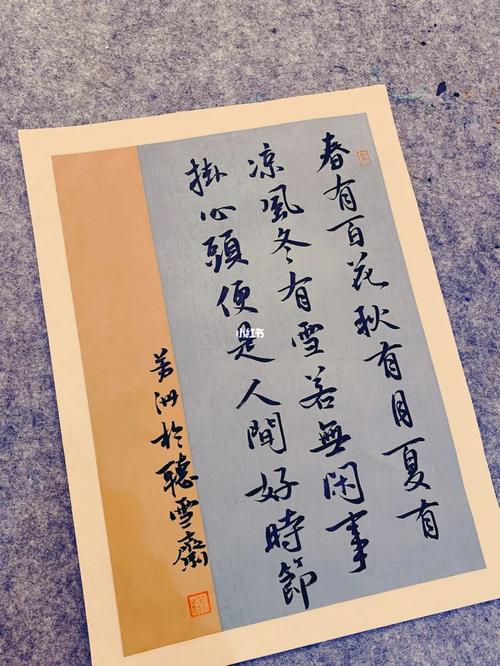 春有百花秋有月夏有
凉風冬有雪若無閑事
掛心頭便是人間好時節
芳洲於聽雪齋
小红书